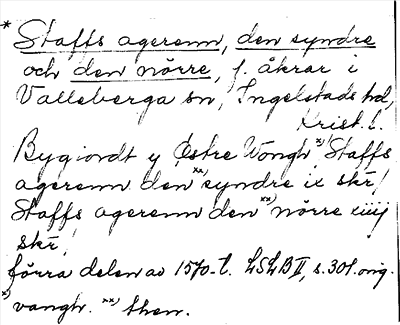 * Staffs agerenn, den syndre
och den nörre, f. åkrar i
Valleberga sn, Ingelstads hd,
Krist. l.
Bygiordt y Østre Wongh x) Staffs
agerenn den xx) syndre ix skr/
Staffs agerenn den xx) nörre iiij
skr/
förra delen av 1570-t. LSLB II, s. 301. orig.
x) vangh. xx) then.